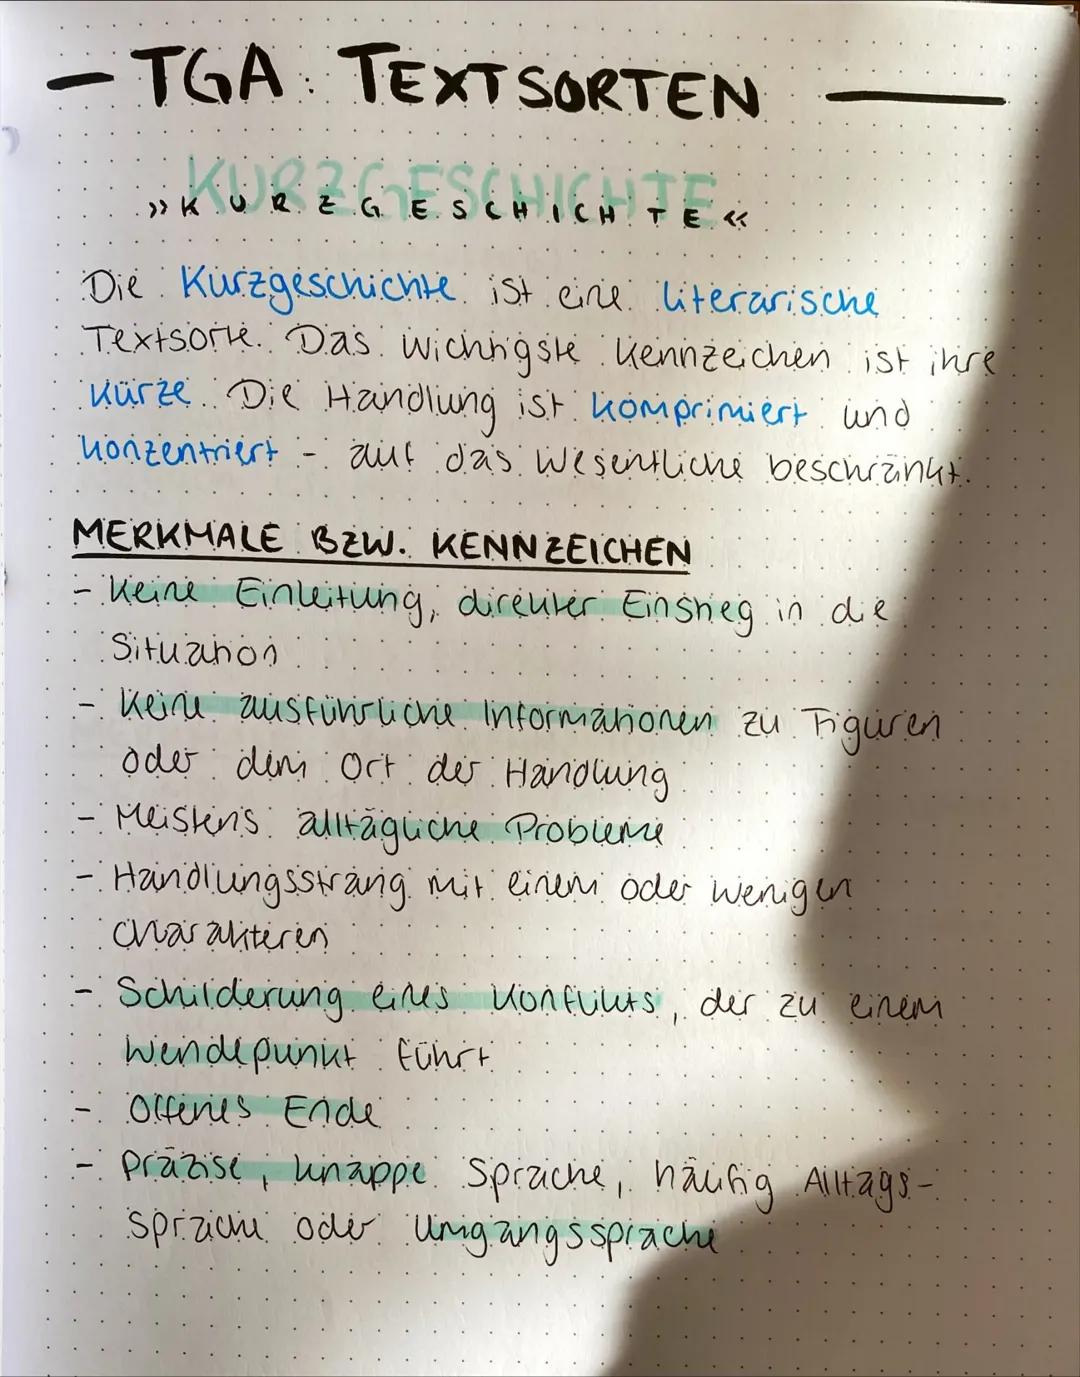 — TGA: TEXTSORTEN —
KURZGESCHICHTE
»KURZGESCHICHTE«
Die Kurzgeschichte ist eine literarische
Textsorte. Das wichtigste Kennzeichen ist ihre
Kürze. Die Handlung ist komprimiert und
konzentriert - auf das Wesentliche beschränkt.
MERKMALE BZW. KENNZEICHEN
- Keine Einleitung, direkter Einstieg in die
Situation
- Keine ausführliche Informationen zu Figuren
oder dem Ort der Handlung
- Meistens alltägliche Probleme
- Handlungsstrang mit einem oder wenigen
Charakteren
- Schilderung eines Konflikts, der zu einem
Wendepunkt führt
- Offenes Ende
- präzise, knappe Sprache, häufig Alltags-
sprache oder Umgangssprache